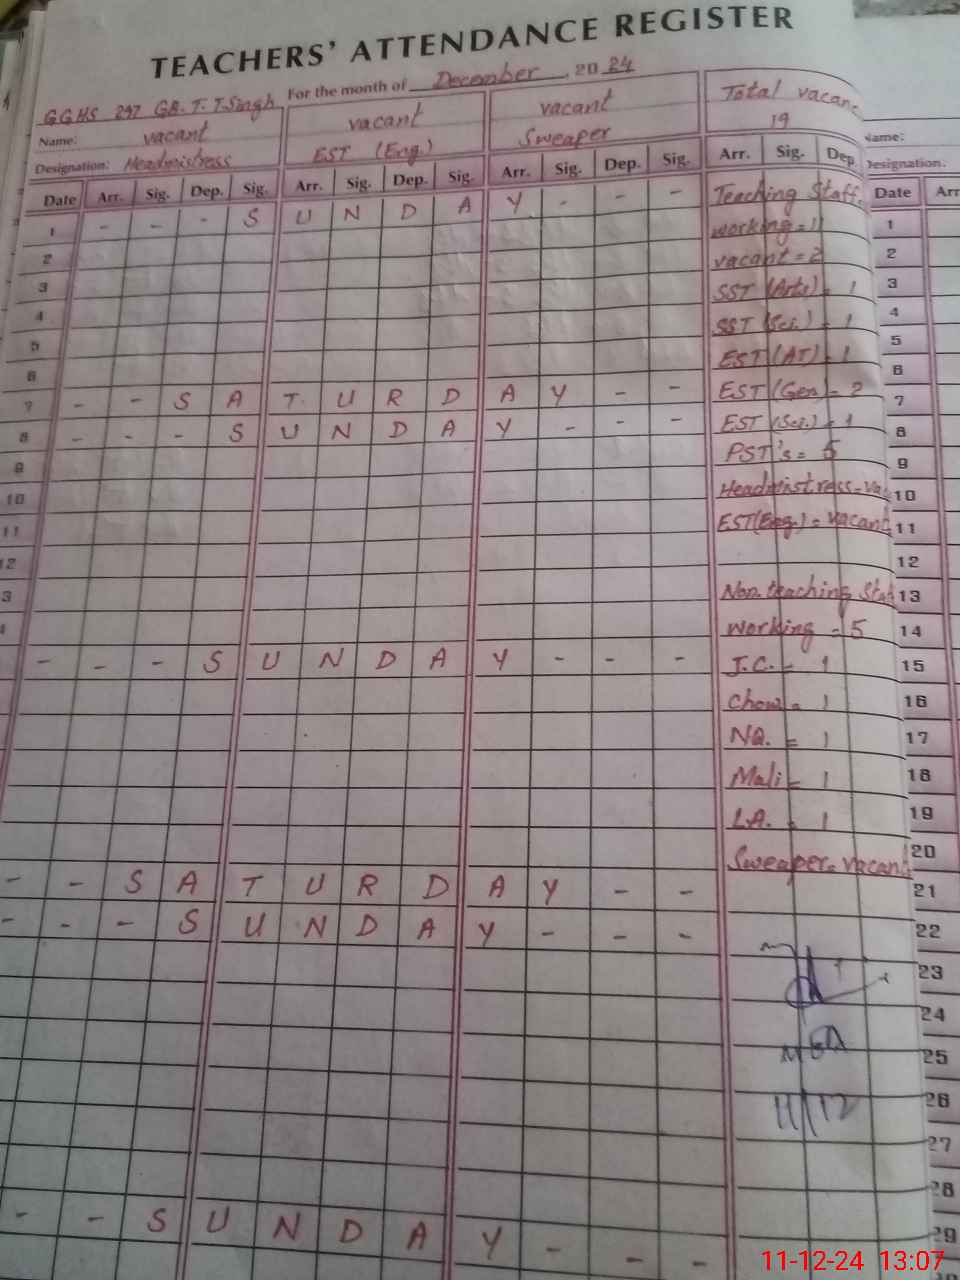 TEACHERS' ATTENDANCE REGISTER
For the month of December, 2024
GGHS 297 GB. T. T.Singh
Name: vacant vacant vacant Total vacan.
Designation: Headmistress EST (Eng.) Sweaper 19
Date Arr. Sig. Dep. Sig. Arr. Sig. Dep. Sig. Arr. Sig. Dep. Sig. Arr. Sig. Dep.
1 - - - S U N D A Y - - - Teaching Staff.
2 working = 11
3 vacant = 2
4 SST (Arts) = 1
5 SST (Sci.) = 1
6 EST (AT) = 1
7 - - S A T U R D A Y - - EST (Gen) = 2
8 - - - S U N D A Y - - - EST (Sci.) = 1
9 PST's = 5
10 Headmistress - vac
11 EST(Eng.) = vacant
12
3 Non. teaching Staf
4 working = 5
- - - S U N D A Y - - - J.C. = 1
Chow = 1
NQ. = 1
Mali = 1
L.A. = 1
Sweaper = vacant
- - S A T U R D A Y - -
- - - S U N D A Y - - -
MEA
11/12
- - S U N D A Y - - -
Name:
Designation:
Date Arr
1
2
3
4
5
6
7
8
9
10
11
12
13
14
15
16
17
18
19
20
21
22
23
24
25
26
27
28
29
11-12-24 13:07